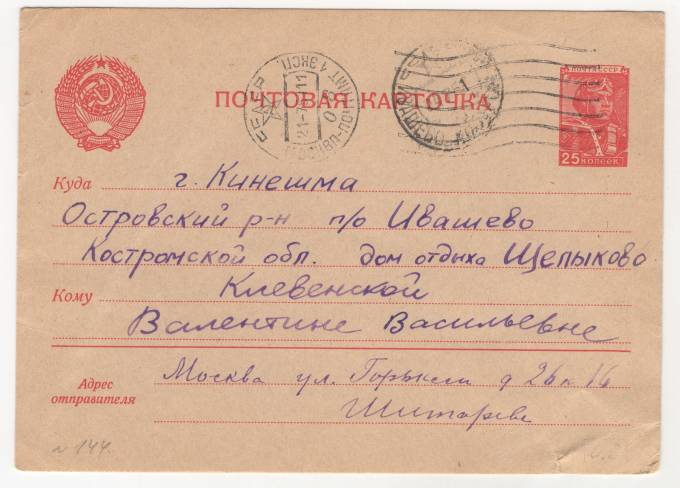 ПОЧТА СССР
ПОЧТОВАЯ КАРТОЧКА
25 КОПЕЕК
Куда г. Кинешма
Островский р-н п/о Ивашево
Костромской обл. дом отдыха Щелыково
Кому Клевенской
Валентине Васильевне
Адрес отправителя
Москва ул. Горького д 26 к 16
№ 144.